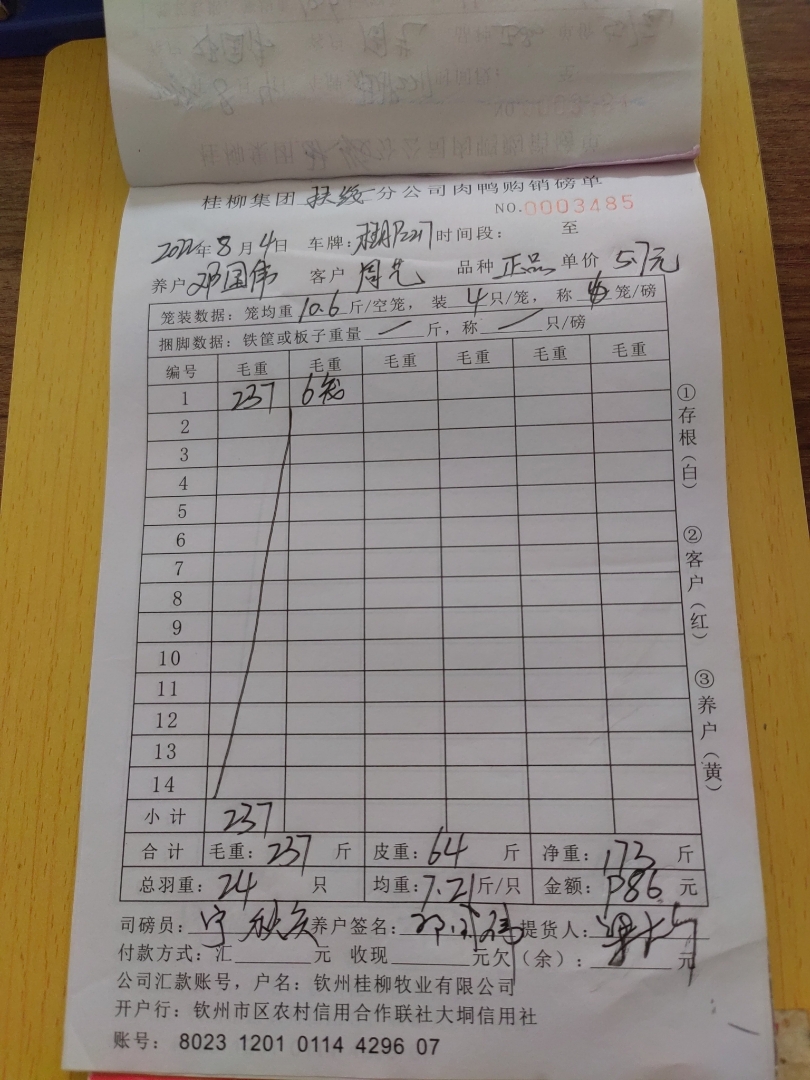 桂柳集团 扶绥 分公司肉鸭购销磅单
NO.0003485
2022年8月4日 车牌: 时间段: 至
养户 邓国伟 客户 周艺 品种 正品 单价 5.7元
笼装数据: 笼均重 10.6 斤/空笼, 装 4 只/笼, 称 笼/磅
捆脚数据: 铁筐或板子重量 — 斤, 称 — 只/磅
编号 毛重 毛重 毛重 毛重 毛重 毛重
1 237 6笼
2
3
4
5
6
7
8
9
10
11
12
13
14
小计 237
合计 毛重: 237 斤 皮重: 64 斤 净重: 173 斤
总羽重: 24 只 均重: 7.21 斤/只 金额: 986 元
司磅员: 养户签名: 邓国伟 提货人:
付款方式: 汇 元 收现 元欠(余): 元
公司汇款账号, 户名: 钦州桂柳牧业有限公司
开户行: 钦州市区农村信用合作联社大垌信用社
账号: 8023 1201 0114 4296 07
①存根(白)
②客户(红)
③养户(黄)